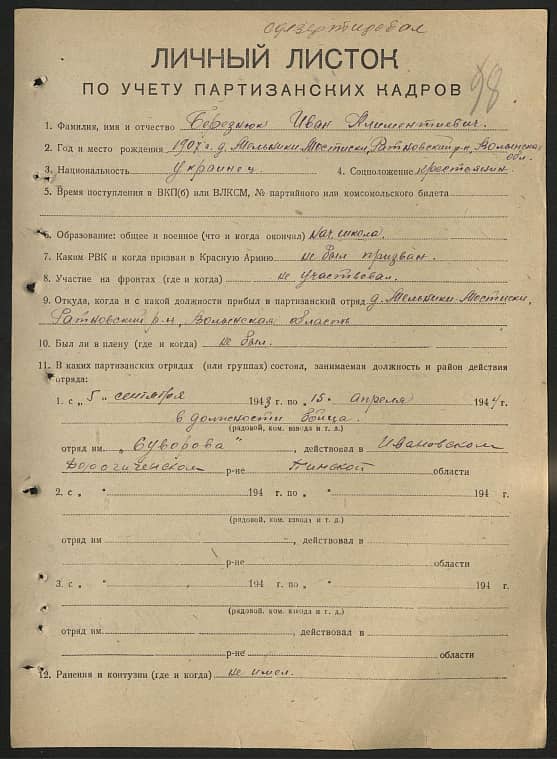 дезертировал
ЛИЧНЫЙ ЛИСТОК
ПО УЧЕТУ ПАРТИЗАНСКИХ КАДРОВ
98
1. Фамилия, имя и отчество Березнюк Иван Алиментиевич.
2. Год и место рождения 1907 г. д. Мельники Местиски, Ратновский р-н, Волынская обл.
3. Национальность украинец 4. Соцположение крестьянин
5. Время поступления в ВКП(б) или ВЛКСМ, № партийного или комсомольского билета
6. Образование: общее и военное (что и когда окончал) нач. школа
7. Каким РВК и когда призван в Красную Армию не был призван.
8. Участие на фронтах (где и когда) не участвовал.
9. Откуда, когда и с какой должности прибыл в партизанский отряд д. Мельники-Местиски,
Ратновский р-н, Волынская область
10. Был ли в плену (где и когда) не был.
11. В каких партизанских отрядах (или группах) состоял, занимаемая должность и район действия
отряда:
1. с „5" сентября 1943 г. по „15" апреля 1944 г.
в должности бойца.
(рядовой, ком. взвода и т. д.)
отряд им „Суворова", действовал в Ивановском
Дорогиченском р-не Пинской области
2. с „ " 194 г. по „ " 194 г.
(рядовой, ком. взвода и т. д.)
отряд им , действовал в
р-не области
3. с „ " 194 г. по „ " 194 г.
(рядовой, ком. взвода и т. д.)
отряд им , действовал в
р-не области
12. Ранения и контузии (где и когда) не имел.